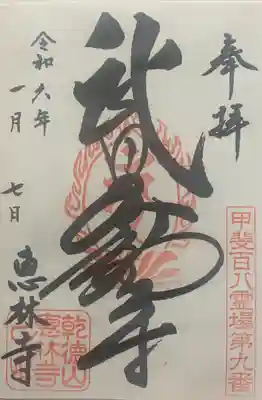 奉拝
甲斐百八霊場第九番
武田不動尊
令和六年
一月
七日
恵林寺
乾徳山
恵林寺